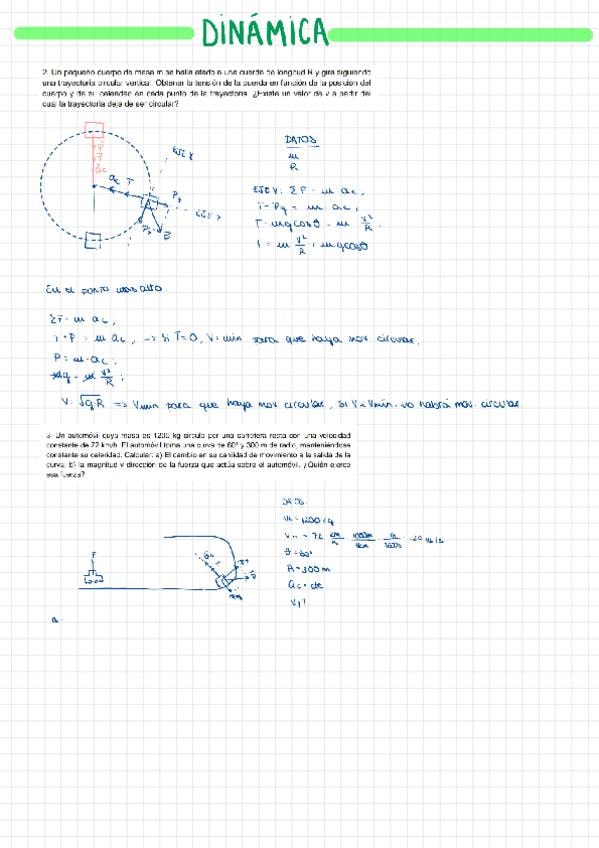 DINÁMICA
2. Un pequeño cuerpo de masa m se halla atado a una cuerda de longitud R y gira siguiendo
una trayectoria circular vertical. Obtener la tensión de la cuerda en función de la posición del
cuerpo y de su celeridad en cada punto de la trayectoria. ¿Existe un valor de v a partir del
cual la trayectoria deja de ser circular?
DATOS
m
R
EJE Y
P
T
ac
ac T
Px
EJE X
Py
EJE Y: ΣF = m ac,
T - Py = m · ac,
T - mg cosθ = m v²/R
T = m v²/R + mg cosθ
En el punto más alto
ΣF = m ac,
T + P = m ac, → Si T=0, V=min para que haya mov circular.
P = m · ac;
mg = m v²/R;
V = √gR => Vmin para que haya mov circular, si V < Vmin. no habrá mov. circular
3. Un automóvil cuya masa es 1200 kg circula por una carretera recta con una velocidad
constante de 72 km/h. El automóvil toma una curva de 60º y 300 m de radio, manteniéndose
constante su celeridad. Calcular: a) El cambio en su cantidad de movimiento a la salida de la
curva; b) la magnitud y dirección de la fuerza que actúa sobre el automóvil. ¿Quién ejerce
esa fuerza?
DATOS
m = 1200 kg
= 72 km/h · 1000m/1km · 1h/3600s = 20 m/s
θ = 60º
R = 300 m
ac = cte
a.